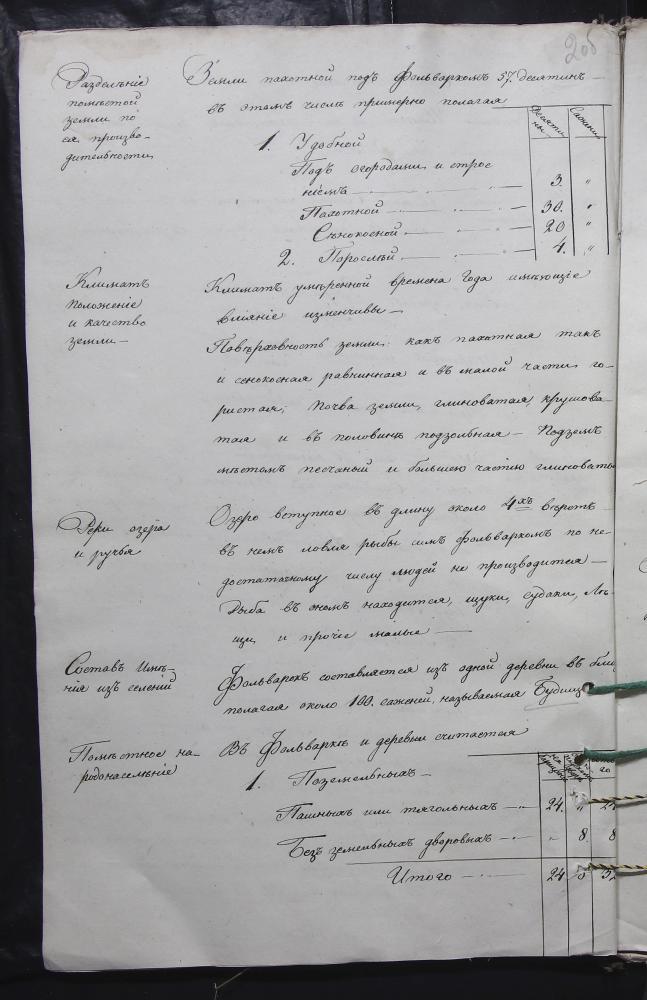 206
Раздѣленіе
помѣстой
земли по
ея произво-
дительности
Земли пахотной подъ Фольваркомъ 57. десятинъ
въ этомъ числѣ примерно полагая
Десяти
ны.
Сажени
1. Удобной
Подъ огородами и строе
ніемъ 3. „
Пахотной 30. „
Сѣнокосной 20 „
2. Порослѣй 4. „
Климатъ
положеніе
и качество
земли
Климатъ умѣренной времена года имѣющіе
вліяніе изменчивы
Повѣрхность земли: какъ пахотная такъ
и сенокосная равнинная и въ малой части го-
ристая; почва земли, глиноватая, крушова-
тая и въ половинѣ подзолбная Подзем
мѣстомъ песчаный и большею частію глиновать
Реки озера
и ручья
Озеро вступное въ длину около 4хъ вѣрстъ
въ немъ ловля рыбы симъ фольваркомъ по не-
достаточному числу людей не производится
Рыба въ ономъ находится, щуки, судаки, Ле-
щи, и прочіе малые
Составъ Имѣ-
нія изъ селеній
Фольварокъ составляется изъ одной деревни въ бли
полагая около 100. саженей, называемая Будищ
Помѣстное на-
родонаселѣніе
Въ Фольваркѣ и деревни считается
1. Поземельныхъ
Пашныхъ или тягольныхъ 24. „
Безъ земельныхъ дворовыхъ „ 8. 8
Итого 24 8